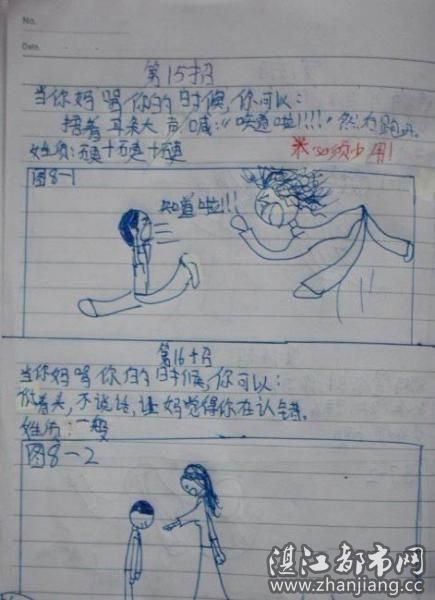 No.
Date.
第15招
当你妈骂你的时候,你可以:
捂着耳朵大声喊:"知道啦!!!"然后跑开。
※必须少用!
图8-1
知道啦!!!
第16招
当你妈骂你的时候,你可以:
低着头,不说话,让妈觉得你在认错。
姓质:一般
图8-2
湛江都市网
www.zhanjiang.cc